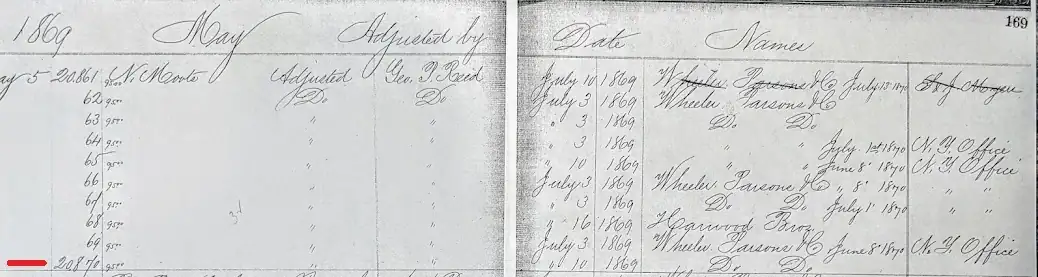 169
1869 May Adjusted by Date Names
ay 5 20.861 N. Moore Adjusted Geo. P. Reed July 10 1869 Wheeler Parsons & C July 13 1870
62 Do Do July 3 1869 Wheeler Parsons & C
63 " " " 3 1869 Do Do
64 " " " 3 1869 " " July 1st 1870 N. Y. Office
65 " " " 10 1869 " " June 8" 1870 N. Y. Office
66 " " July 3 1869 Wheeler Parsons & C " 8" 1870 " "
67 " " " 3 1869 Do Do July 1" 1870 " "
68 " " " 16 1869 Harwood Bros
69 " " July 3 1869 Wheeler Parsons & C June 8" 1870 N. Y. Office
20.870 " 10 1869 Do Do